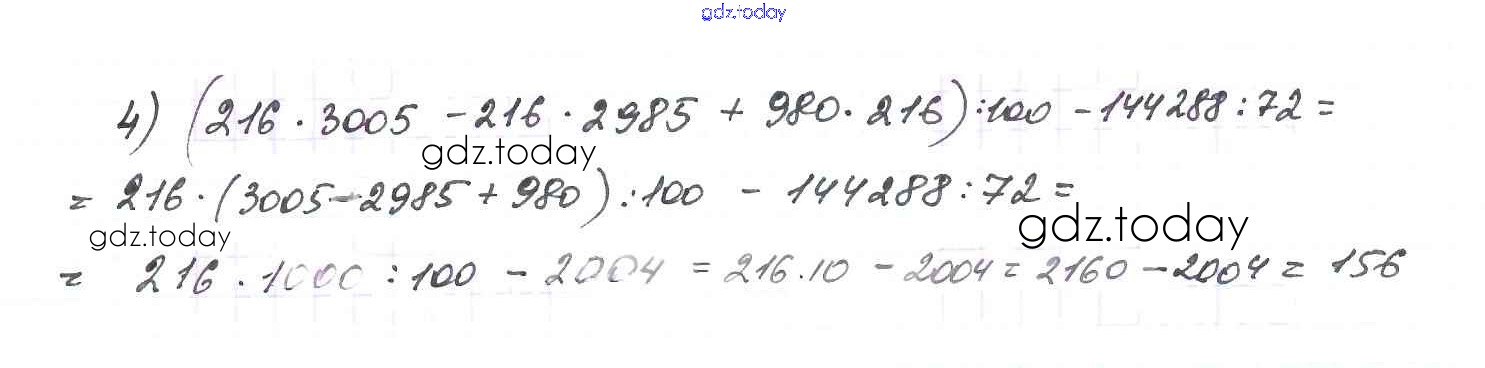 gdz.today
4) (216 · 3005 - 216 · 2985 + 980 · 216) : 100 - 144288 : 72 =
gdz.today
= 216 · (3005 - 2985 + 980) : 100 - 144288 : 72 =
gdz.today
gdz.today
= 216 · 1000 : 100 - 2004 = 216 · 10 - 2004 = 2160 - 2004 = 156